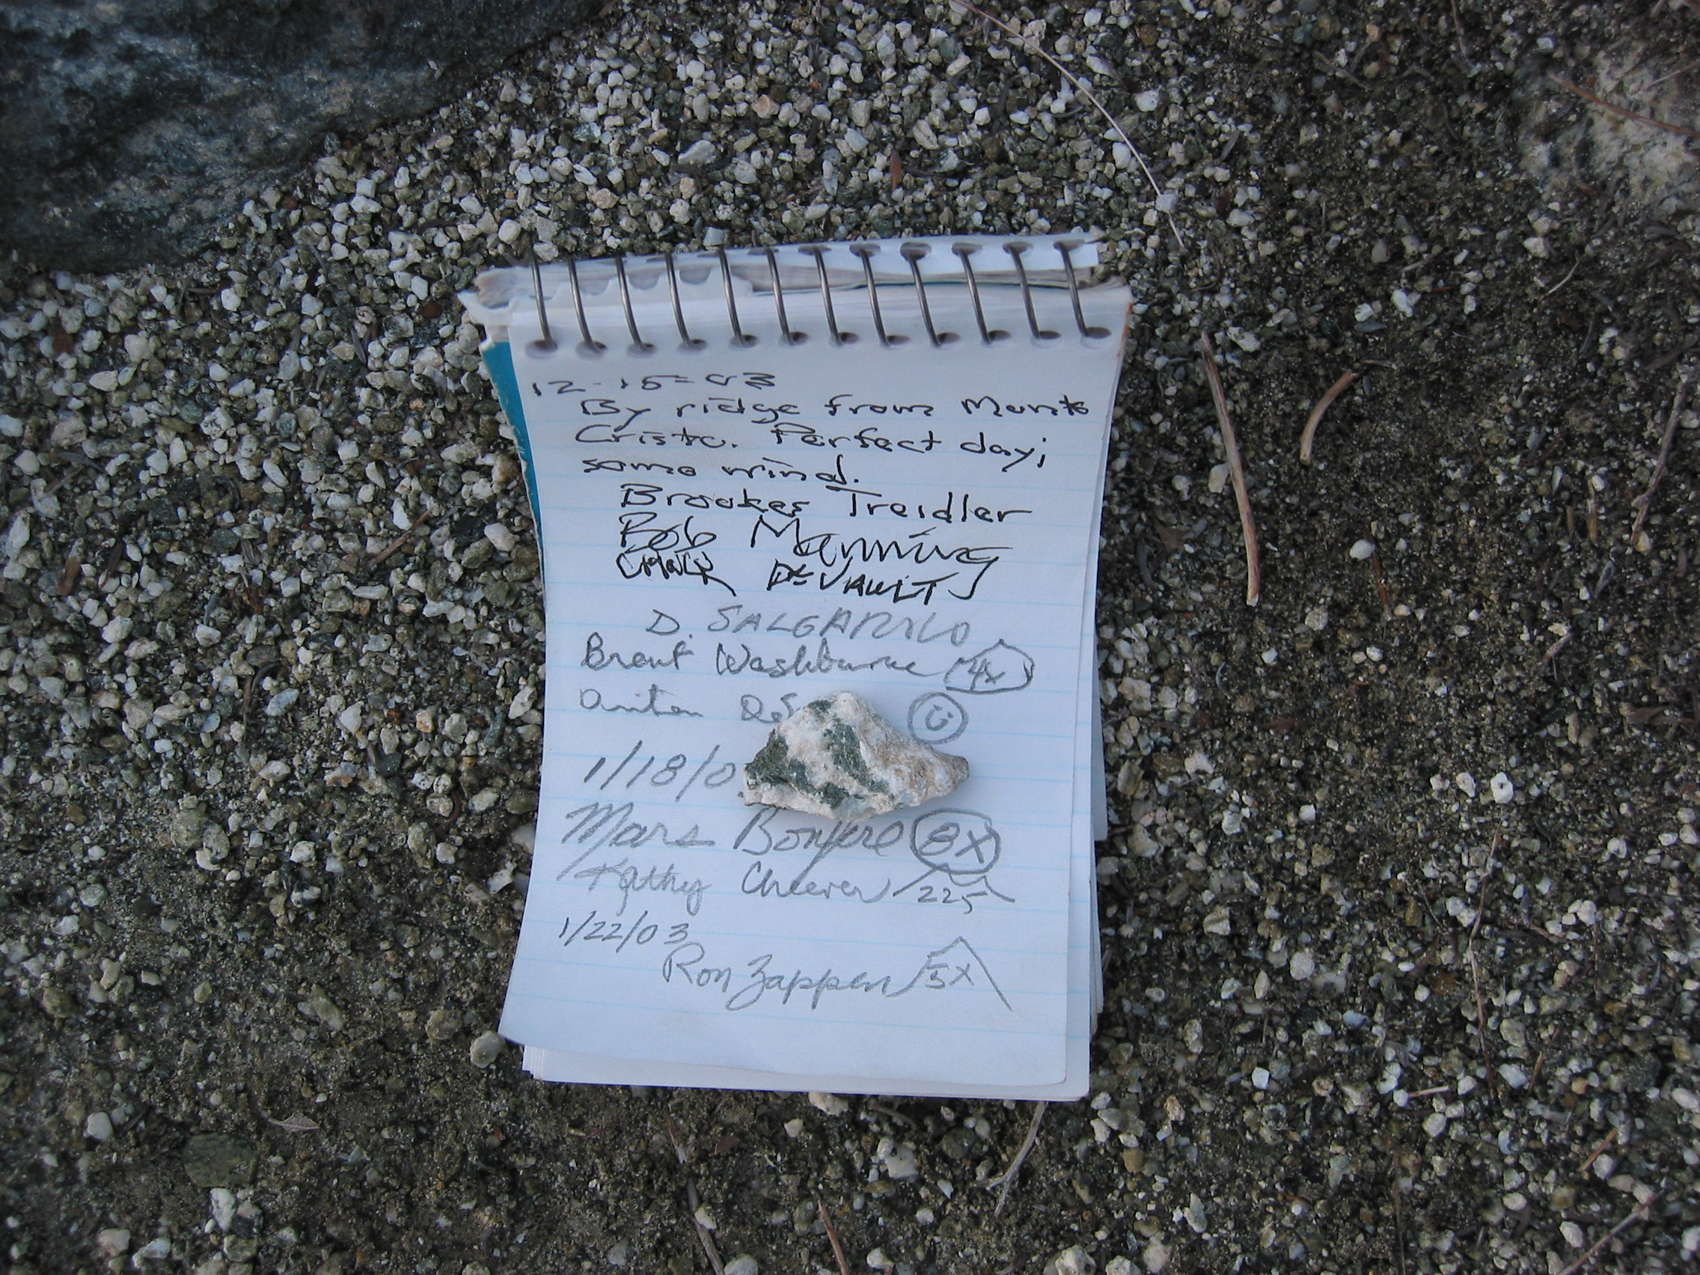 12-15-03
By ridge from Monte
Cristo. Perfect day;
some wind.
Brookes Treidler
Bob Manning
DEVAULT
D.
Brent Washburne 4x
1/18/0
Mars Bonfire 8X
Kathy Cheever 225
1/22/03
Ron Zappen 5x